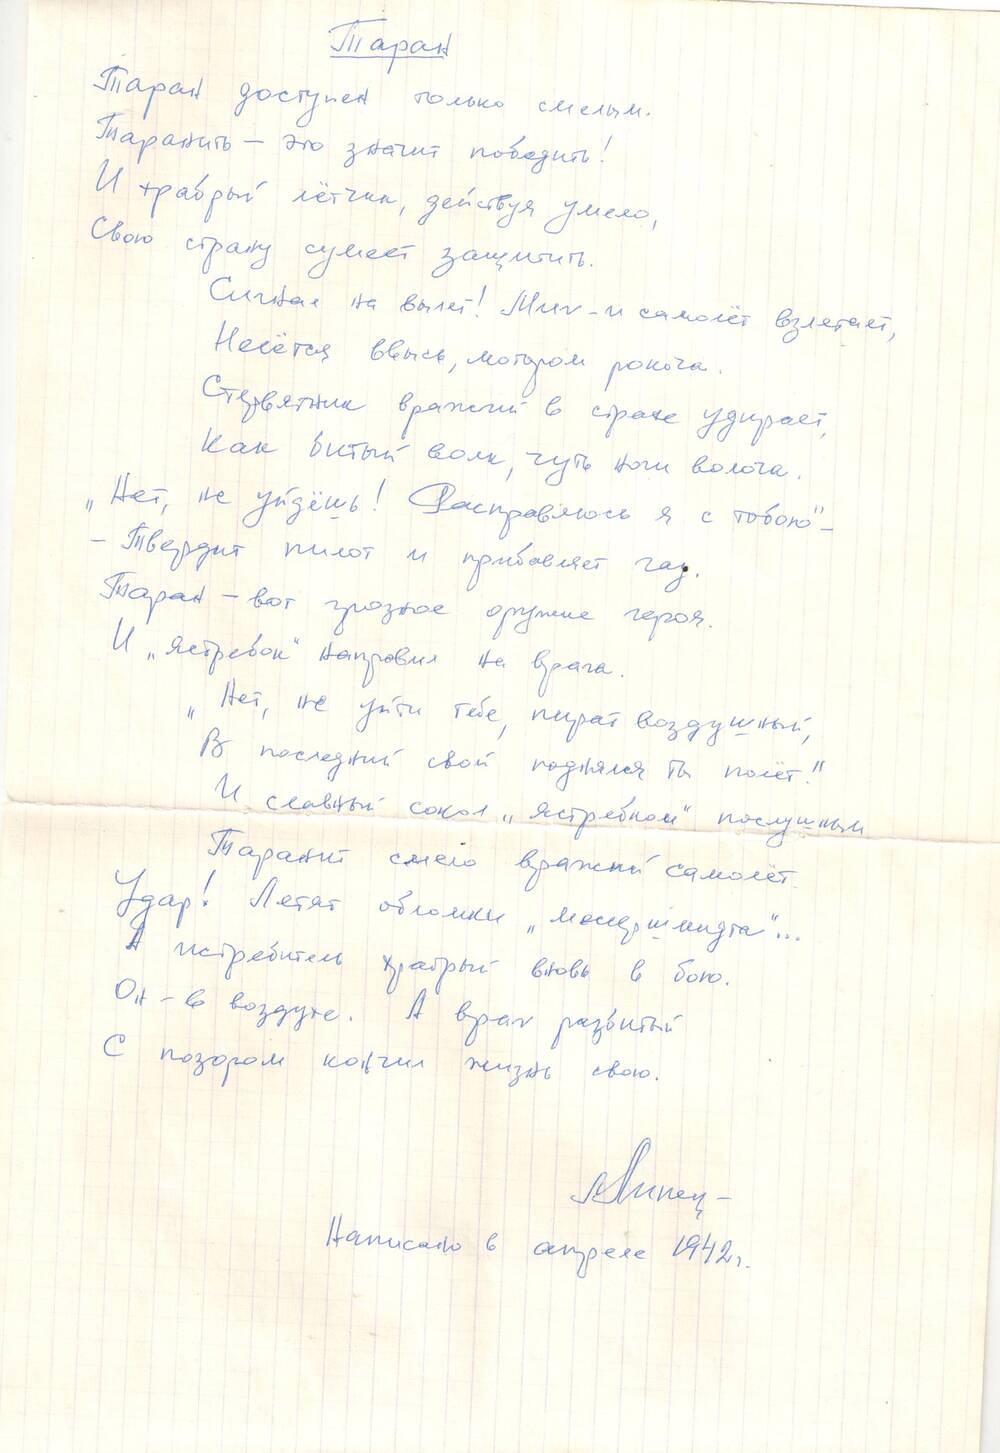 Таран
Таран доступен только смелым.
Таранить — это значит победить!
И храбрый лётчик, действуя умело,
Свою страну сумеет защитить.
Сигнал на вылет! Миг – и самолёт взлетает,
Несётся ввысь, мотором рокоча.
Стервятник вражий в страхе удирает,
Как битый волк, чуть ноги волоча.
„Нет, не уйдёшь! Расправлюсь я с тобою“ –
– Твердит пилот и прибавляет газ.
Таран – вот грозное оружие героя.
И „ястребок“ направил на врага.
„Нет, не уйти тебе, пират воздушный,
В последний свой поднялся ты полёт.“
И славный сокол „ястребком“ послушным
Таранит смело вражий самолёт.
Удар! Летят обломки „мессершмидта“...
А истребитель храбрый вновь в бою.
Он – в воздухе. А враг разбитый
С позором кончил жизнь свою.
Липец –
Написано в апреле 1942 г.